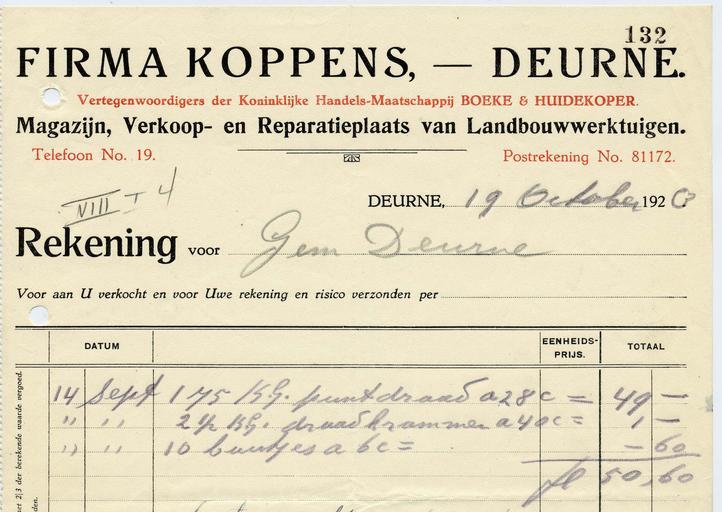 132
FIRMA KOPPENS, — DEURNE.
Vertegenwoordigers der Koninklijke Handels-Maatschappij BOEKE & HUIDEKOPER.
Magazijn, Verkoop- en Reparatieplaats van Landbouwwerktuigen.
Telefoon No. 19. Postrekening No. 81172.
NIII I 4
DEURNE, 19 October 192
Rekening voor Gem Deurne
Voor aan U verkocht en voor Uwe rekening en risico verzonden per
DATUM EENHEIDS-PRIJS. TOTAAL
14 Sept 175 KG. puntdraad a 28 c = 49 —
" " 2½ KG. draadkrammen a 40 c = 1 —
" " 10 boutjes a 6 c = — 60
fl 50,60
met 2/3 der berekende waarde vergoed.